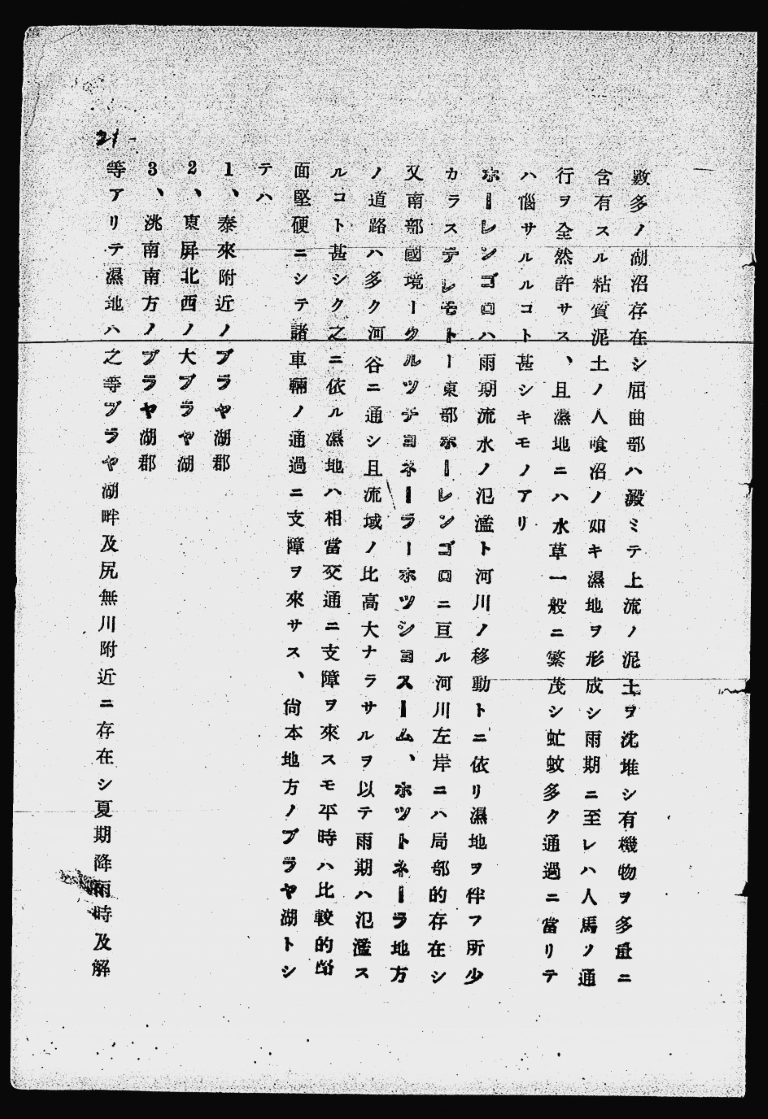 21-
數多ノ湖沼存在シ屈曲部ハ澱ミテ上流ノ泥土ヲ沈堆シ有機物ヲ多量ニ
含有スル粘質泥土ノ人喰沼ノ如キ濕地ヲ形成シ雨期ニ至レハ人馬ノ通
行ヲ全然許サス、且濕地ニハ水草一般ニ繁茂シ虻蚊多ク通過ニ當リテ
ハ惱サルルコト甚シキモノアリ
ホーレンゴロハ雨期流水ノ氾濫ト河川ノ移動トニ依リ濕地ヲ伴フ所少
カラステレモトー東部ホーレンゴロニ亘ル河川左岸ニハ局部的存在シ
又南部國境ークルツチヨネーラーホツシヨスーム、ホツトネーラ地方
ノ道路ハ多ク河谷ニ通シ且流域ノ比高大ナラサルヲ以テ雨期ハ氾濫ス
ルコト甚シク之ニ依ル濕地ハ相當交通ニ支障ヲ來スモ平時ハ比較的路
面堅硬ニシテ諸車輛ノ通過ニ支障ヲ來サス、尙本地方ノブラヤ湖トシ
テハ
1、泰來附近ノブラヤ湖郡
2、東屏北西ノ大ブラヤ湖
3、洮南南方ノブラヤ湖郡
等アリテ濕地ハ之等ブラヤ湖畔及尻無川附近ニ存在シ夏期降雨時及解